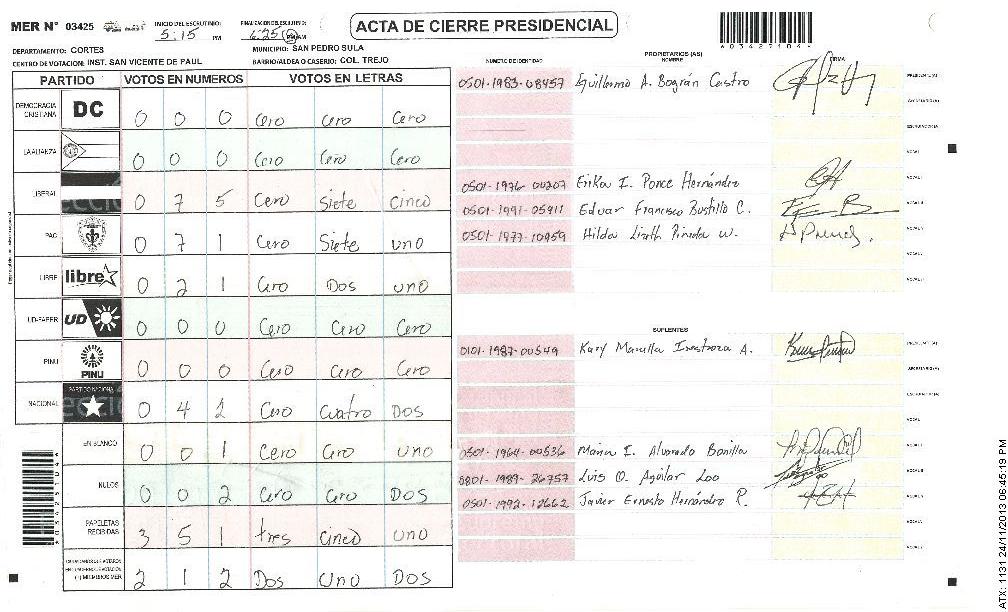 MER N° 03425
INICIO DEL ESCRUTINIO: 5:15 PM
FINALIZACION DEL ESCRUTINIO: 6:25 PM
ACTA DE CIERRE PRESIDENCIAL
A03427104
DEPARTAMENTO: CORTES
MUNICIPIO: SAN PEDRO SULA
CENTRO DE VOTACION: INST. SAN VICENTE DE PAUL
BARRIO/ALDEA O CASERIO: COL. TREJO
PARTIDO VOTOS EN NUMEROS VOTOS EN LETRAS
DEMOCRACIA CRISTIANA DC 0 0 0 Cero Cero Cero
LA ALIANZA 0 0 0 Cero Cero Cero
LIBERAL 0 7 5 Cero Siete Cinco
PAC 0 7 1 Cero Siete uno
LIBRE libre 0 2 1 Cero Dos uno
UD-FAPER UD 0 0 0 Cero Cero Cero
PINU PINU 0 0 0 Cero Cero Cero
NACIONAL PARTIDO NACIONAL 0 4 2 Cero Cuatro Dos
EN BLANCO 0 0 1 Cero Cero uno
NULOS 0 0 2 Cero Cero Dos
PAPELETAS RECIBIDAS 3 5 1 tres Cinco uno
(+) MIEMBROS MER 2 1 2 Dos Uno Dos
PROPIETARIOS (AS)
NUMERO DE IDENTIDAD NOMBRE FIRMA
0501-1983-08457 Eguillermo A. Bográn Castro PRESIDENTE(A)
SECRETARIO(A)
ESCRUTADOR(A)
VOCAL I
0501-1976-00207 Erika I. Ponce Hernández
0501-1991-05911 Eduar Francisco Bustillo C.
0501-1977-10959 Hilda Lizeth Pineda W.
SUPLENTES
0101-1987-00549 Kary Marcella Inestroza A. PRESIDENTE(A)
SECRETARIO(A)
ESCRUTADOR(A)
VOCAL I
0501-1964-00536 Maria I. Alvarado Bonilla
0801-1989-26757 Luis O. Aguilar Loo
0501-1992-12662 Javier Ernesto Hernández R.
ATX: 1131 24/11/2013 06:45:19 PM